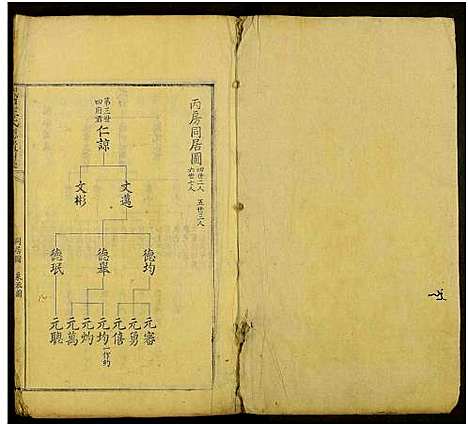 丙房同居圖
四世二人 五世三人
六世七人
第三世
四府君
仁諒
文邁
文彬
德均
德舉
德珉
元審
元勇
元僖
元均 一作約
元灼
元萬
元聰
同居圖